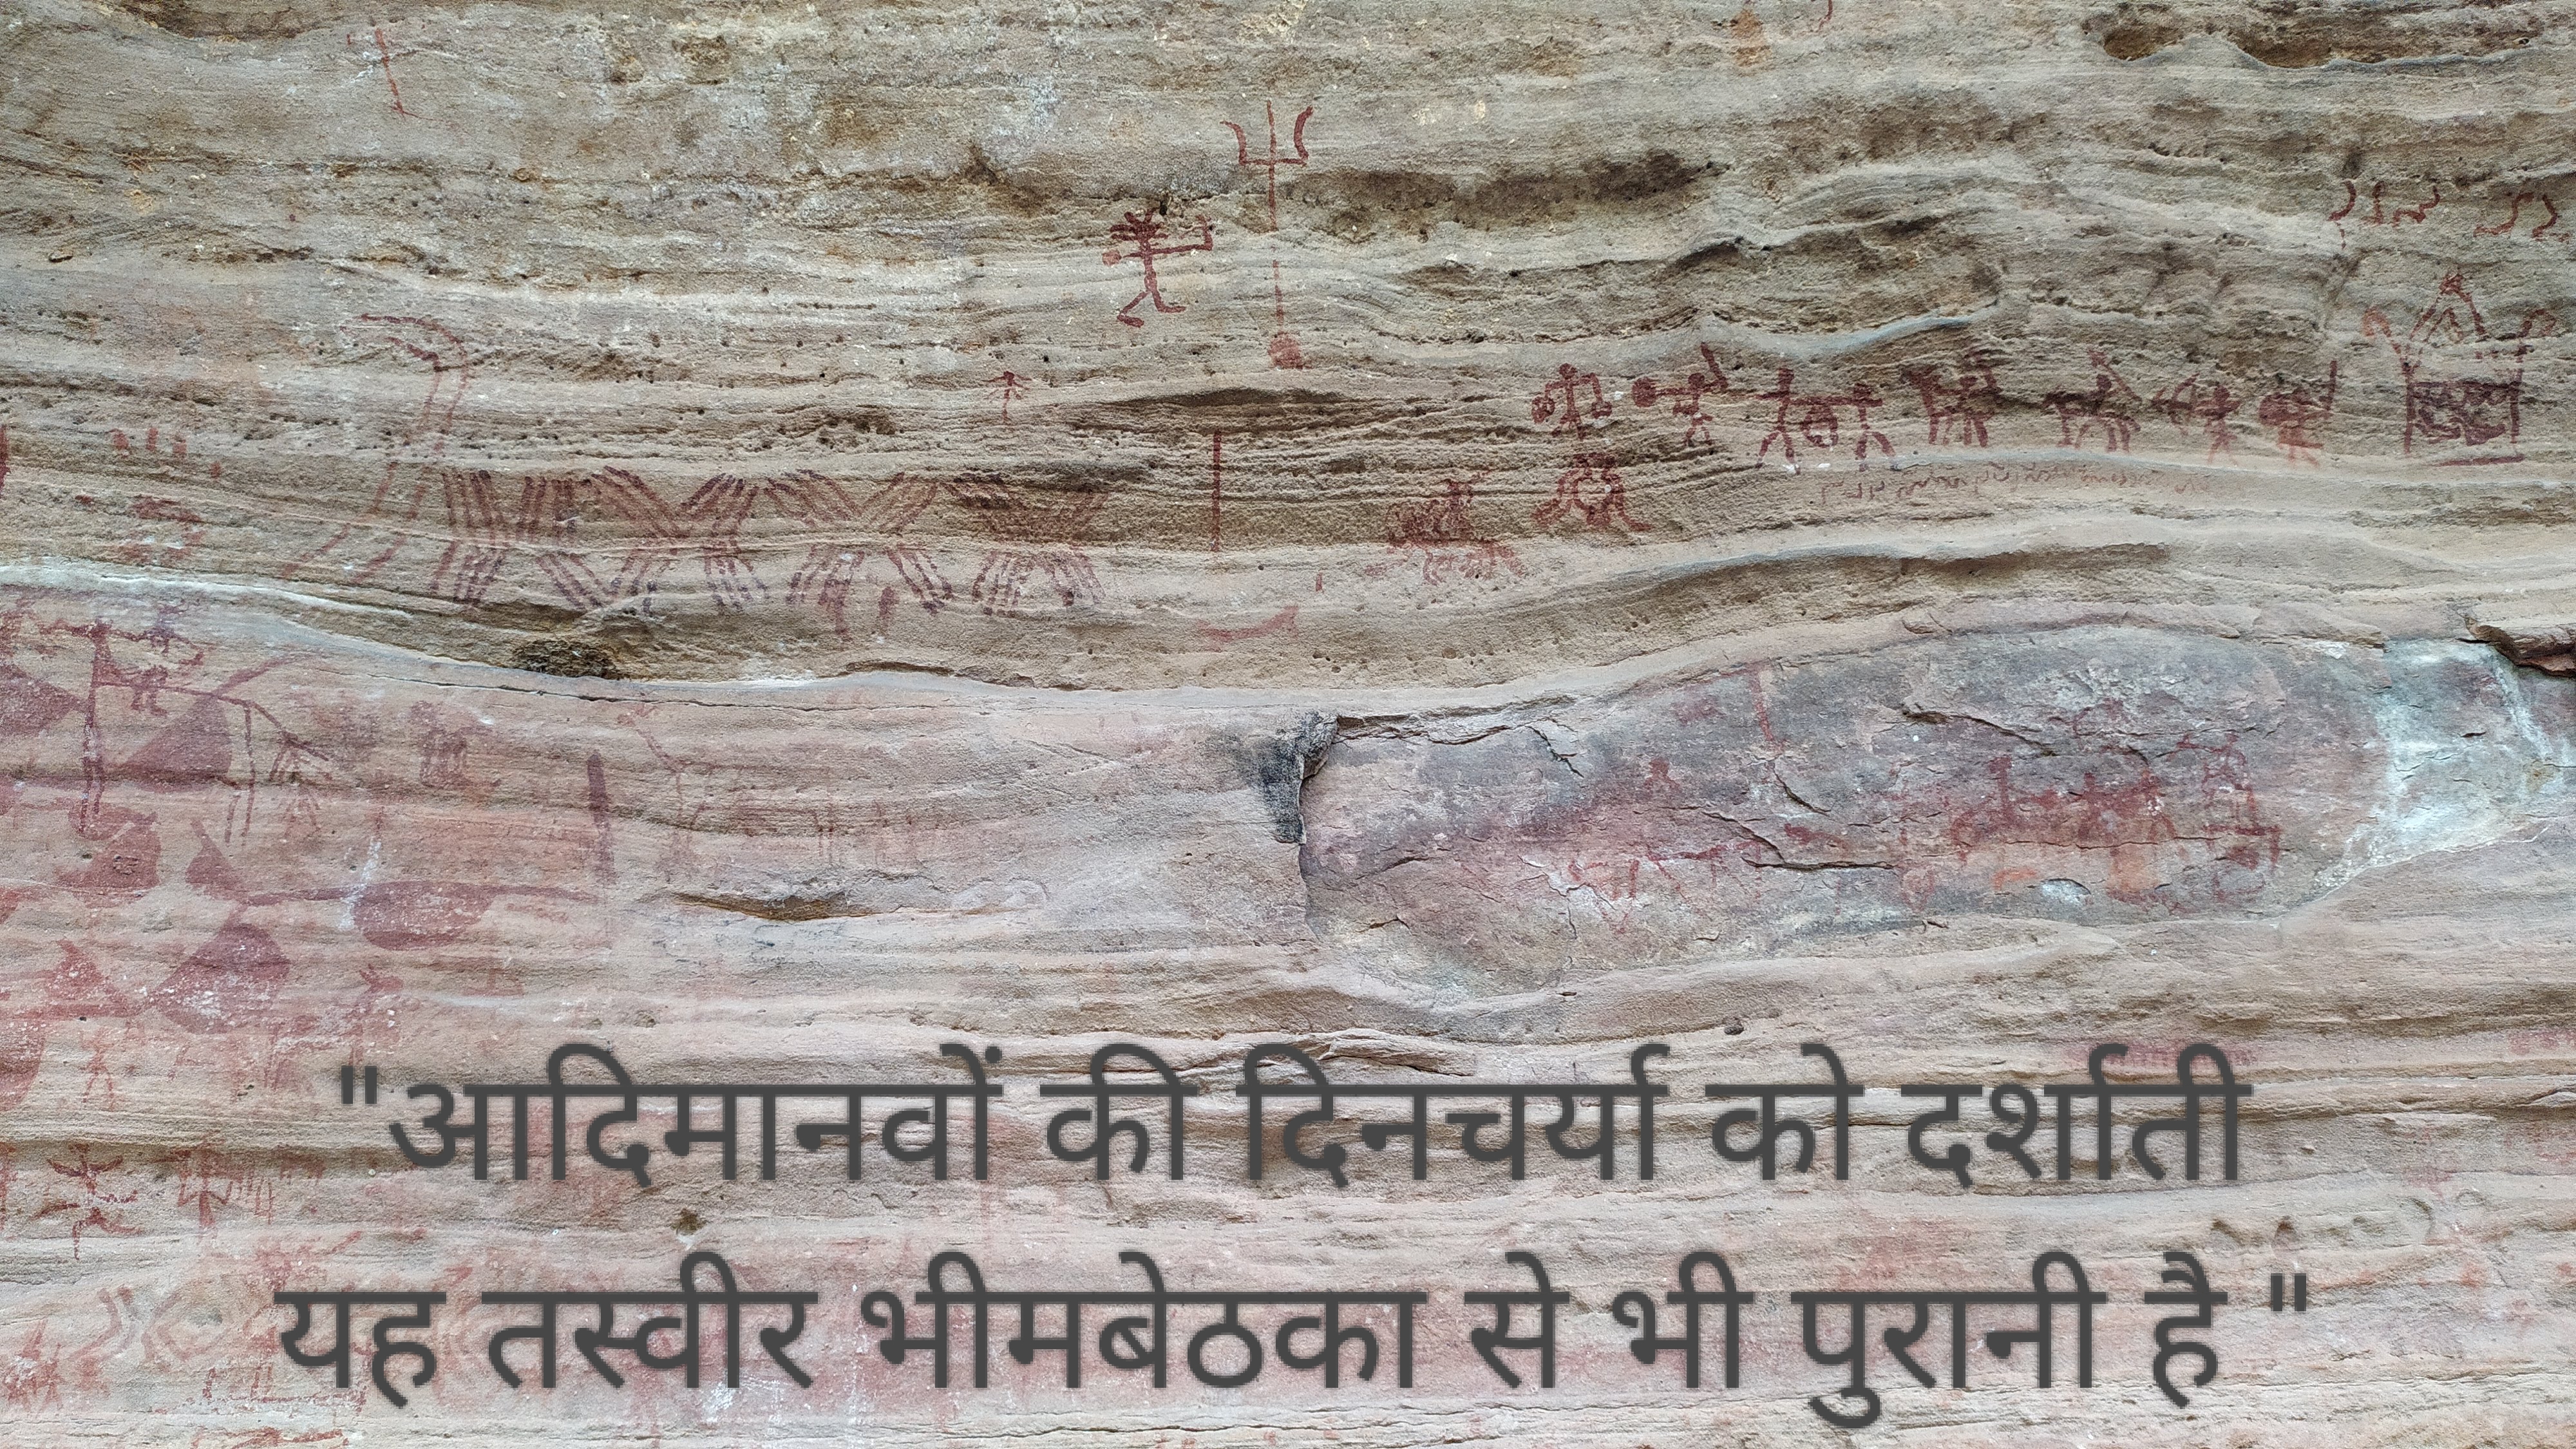 "आदिमानवों की दिनचर्या को दर्शाती
यह तस्वीर भीमबेठका से भी पुरानी है "